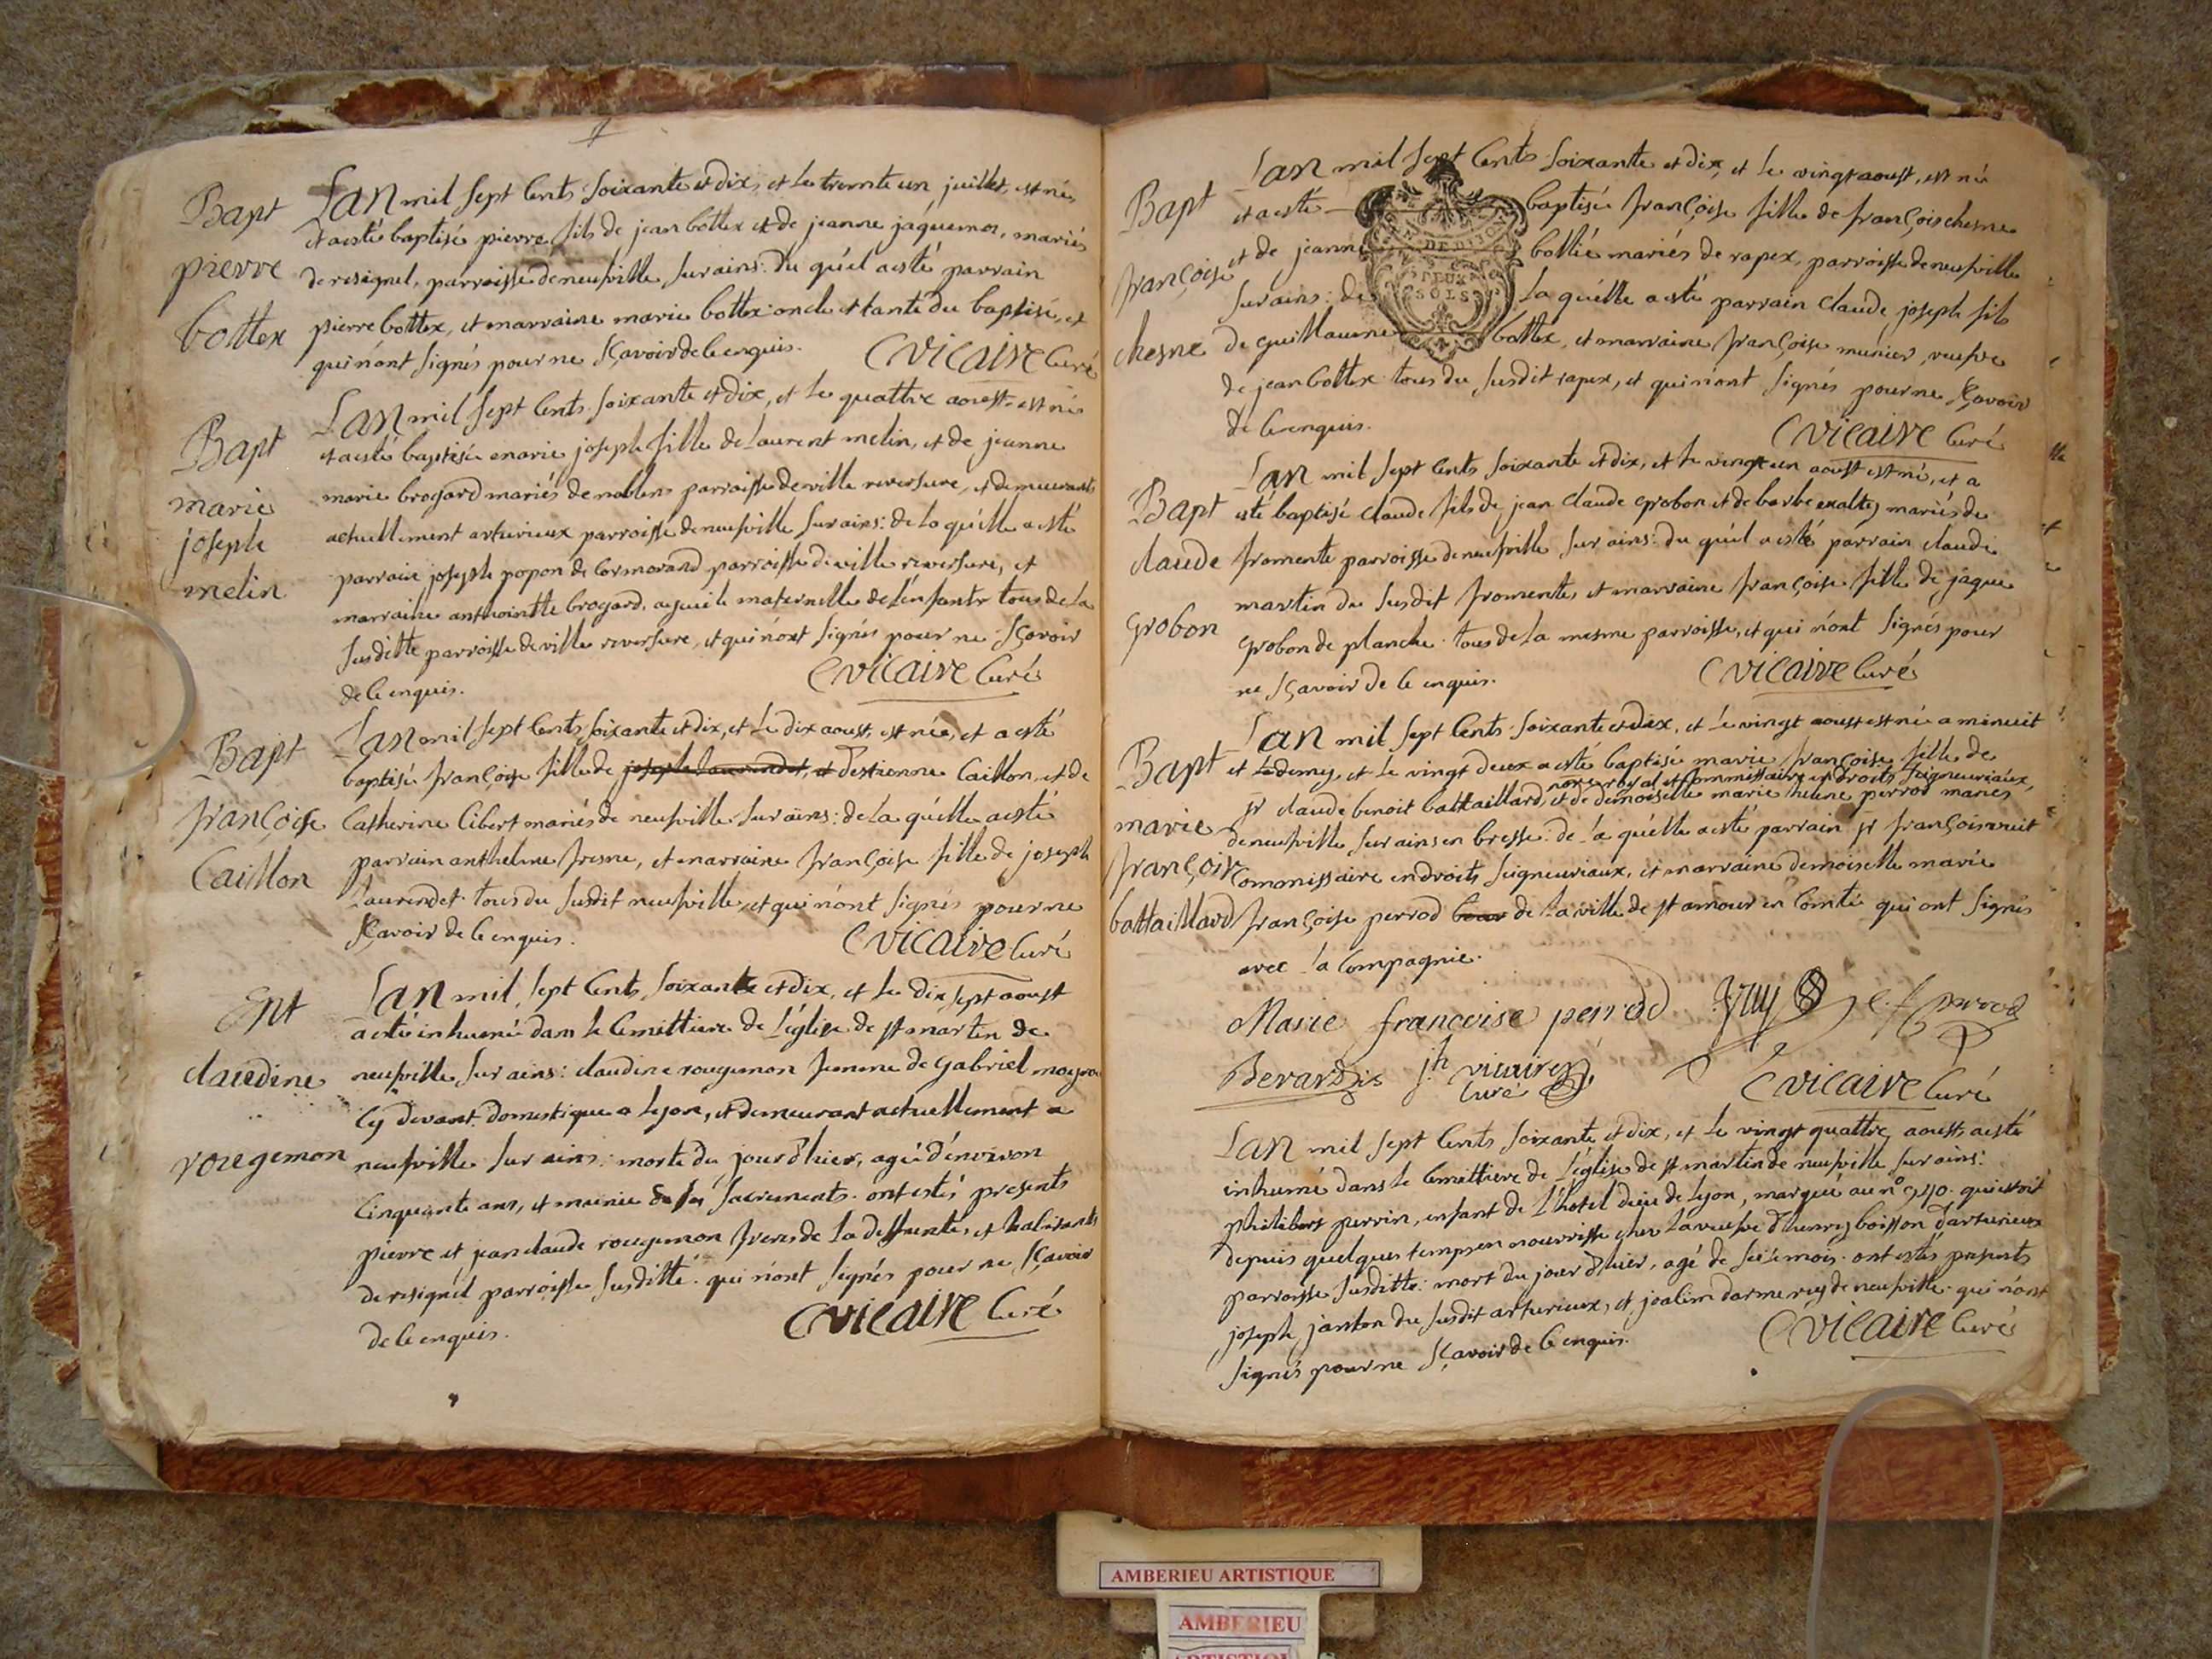 Bapt
pierre
bottex
Lan mil sept Cents soixante et dix, et le trente un juillet, est né,
et a esté baptisé pierre fils de jean bottex et de jeanne jaquemer, mariés
de resignel, parroisse de neufville sur ains: du quél a esté parrain
pierre bottex, et marraine marie bottex oncle et tante du baptisé, et
qui n'ont signés pour ne sçavoir de ce enquis. C vicaire Curé
Bapt
marie
joseph
melin
Lan mil sept Cents soixante et dix, et le quattre aoust est née
et a esté baptisée marie joseph fille de Laurent melin, et de jeanne
marie brogard mariés de noblens parroisse de ville reversure, et demeurants
actuellement arturieux parroisse de neufville sur ains: de la quélle a esté
parrain joseph popon de Cormorand parroisse de ville reversure, et
marraine anthoinette brogard, ayeule maternelle de l'enfant tous de la
susditte parroisse de ville reversure, et qui n'ont signés pour ne sçavoir
de ce enquis. C vicaire Curé
Bapt
françoise
Caillon
Lan mil sept Cents soixante et dix, et Le dix aoust, est née, et a esté
baptisée françoise fille de joseph Laurendet, et d'estienne Caillon, et de
Catherine Cibert mariés de neufville sur ains: de la quélle a esté
parrain anthelme fresne, et marraine françoise fille de joseph
Laurendet tous du susdit neufville, et qui n'ont signés pour ne
sçavoir de ce enquis. C vicaire Curé
Ent
claudine
rougemon
Lan mil sept Cents soixante et dix, et le dix sept aoust
a esté inhumé dans le Cemittiere de L'église de st martin de
neufville sur ains: claudine rougemon femme de gabriel
Cy devant domestique a Lyon, et demeurant actuellement a
neufville sur ains: morte du jour d'hier, agée d'environ
Cinquante ans, et munie de ses sacrements. ont estés presents
pierre et jean claude rougemon freres de La deffunte, et habitants
de resignél parroisse susditte. qui n'ont signés pour ne sçavoir
de ce enquis. C vicaire Curé
Bapt
françoise
chesne
Lan mil sept Cents soixante et dix, et le vingt aoust, est né
et a esté baptisée françoise fille de françois chesne
et de jeanne bollié mariés de rapex, parroisse de neufville
sur ains: de La quélle a esté parrain Claude joseph fils
de guillaume bottex, et marraine françoise munier, veufve
de jean bottex tous du susdit rapex, et qui n'ont signés pour ne sçavoir
de ce enquis. C vicaire Curé
DE DIJON
DEUX
SOLS
Bapt
claude
grobon
Lan mil sept Cents soixante et dix, et le vingt un aoust est né, et a
esté baptisé claude fils de jean claude grobon et de barbe mariés de
fromente parroisse de neufville sur ains: du quél a esté parrain claude
martin du susdit fromente, et marraine françoise fille de jaque
grobon de planche tous de La mesme parroisse, et qui n'ont signés pour
ne sçavoir de ce enquis. C vicaire Curé
Bapt
marie
françoise
battaillard
Lan mil sept Cents soixante et dix, et Le vingt aoust est née a minuit
et demy, et Le vingt deux a esté baptisé marie françoise fille de
nore royal et Commissaire en droits seigneuriaux,
sr claude benoit battaillard, et de demoiselle marie helene perrod mariés
de neufville sur ains en bresse: de La quélle a esté parrain sr françois
Commissaire en droits seigneuriaux, et marraine demoiselle marie
françoise perrod de La ville de st amour en Comté qui ont signés
avec La Compagnie.
Marie francoise perrod
jh vicaire
Curé C vicaire Curé
Lan mil sept Cents soixante et dix, et Le vingt quattre aoust a esté
inhumé dans Le Cemittiere de L'église de st martin de neufville sur ains:
philibert perrin, enfant de L'hotel dieu de Lyon, marqué au n° 940. qui estoit
depuis quelques temps en nourrisse chez La veufve d'henry boisson d'arturieux
parroisse susditte: mort du jour d'hier, agé de seize mois. ont estés presents
joseph janton du susdit arturieux, et joalim darmerey de neufville. qui n'ont
signés pour ne sçavoir de ce enquis. C vicaire Curé
AMBERIEU ARTISTIQUE
AMBERIEU